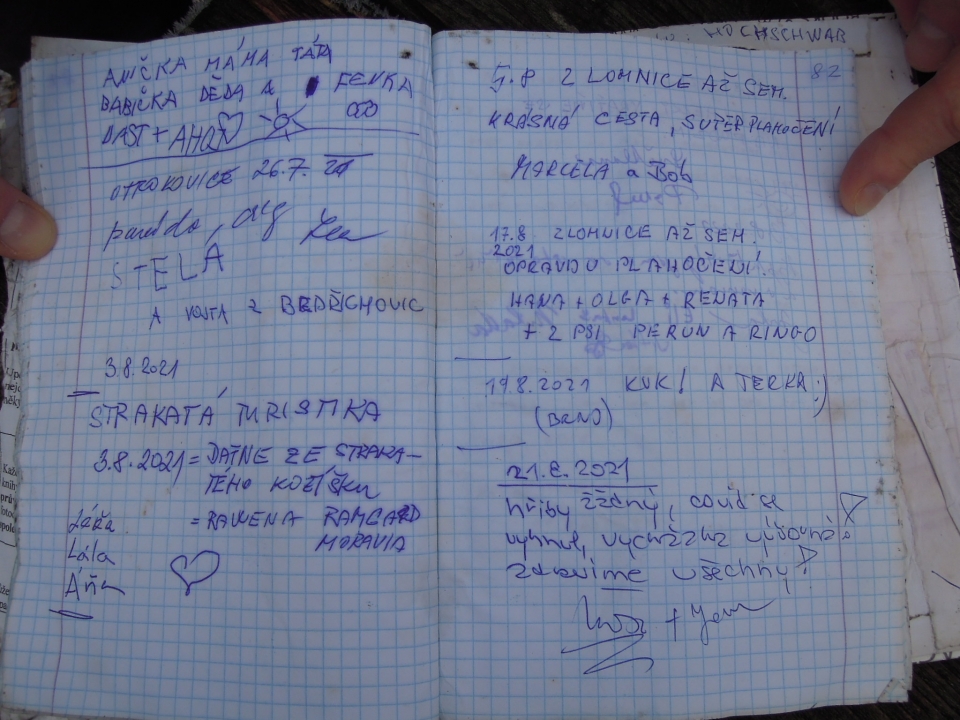 ANIČKA MÁMA TÁTA
BABIČKA DĚDA A FENKA
DAST + AHOJ
OTROKOVICE 26.7. 21
STELÁ
A VOJTA Z BEDŘICHOVIC
3.8.2021
STRAKATÁ TURISTIKA
3.8.2021 = DATNE ZE STRAKA-
TÉHO KOŽÍŠKU
Láďa = RAWENA RAMGARD
MORAVIA
Lála
Áňa
HOCHSCHWAB
82
5.8 Z LOMNICE AŽ SEM.
KRÁSNÁ CESTA, SUPER PLAHOČENÍ
MARCELA a Bob
17.8 Z LOMNICE AŽ SEM.
2021
OPRAVDU PLAHOČENÍ.
HANA + OLGA + RENATA
+ 2 PSI PERUN A RINGO
19.8.2021 KUK! A TERKA :)
(BRNO)
21.8.2021
hřiby žádný, covid se
vyhnul, vycházka výborná!
zdravíme všechny!